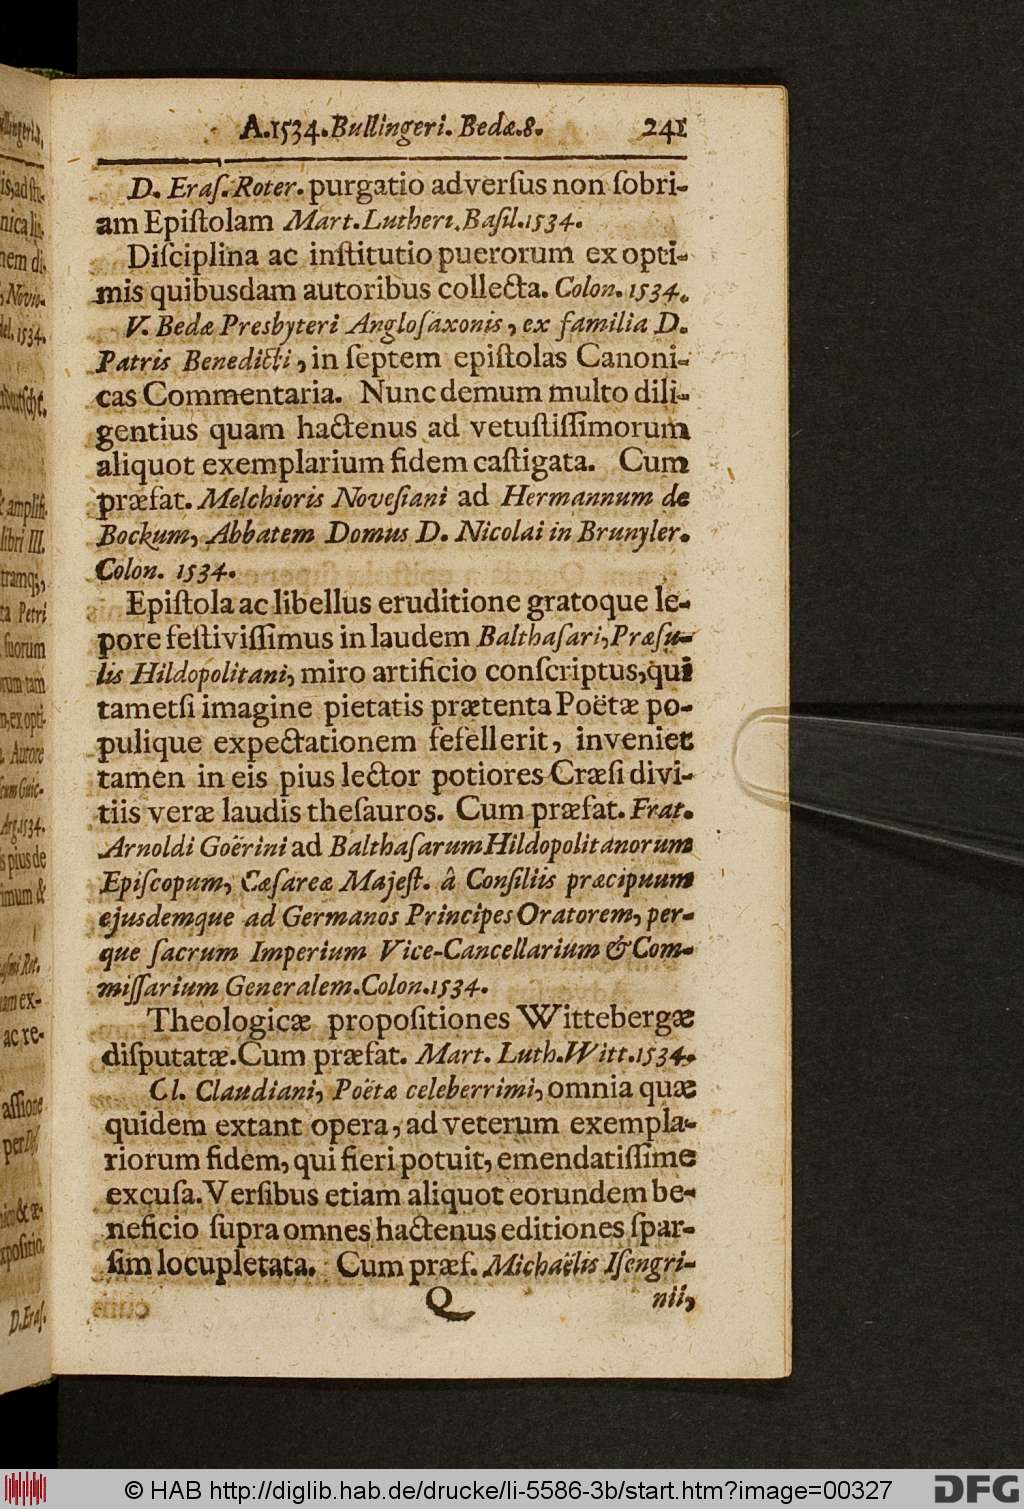 A.1534. Bullingeri. Bedæ. 8. 241
D. Eraſ. Roter. purgatio adverſus non ſobri-
am Epiſtolam Mart. Lutheri. Baſil. 1534.
Diſciplina ac inſtitutio puerorum ex opti-
mis quibusdam autoribus collecta. Colon. 1534.
V. Bedæ Presbyteri Angloſaxonis, ex familia D.
Patris Benedicti, in ſeptem epiſtolas Canoni-
cas Commentaria. Nunc demum multo dili-
gentius quam hactenus ad vetuſtiſſimorum
aliquot exemplarium fidem caſtigata. Cum
præfat. Melchioris Noveſiani ad Hermannum de
Bockum, Abbatem Domus D. Nicolai in Brunyler.
Colon. 1534.
Epiſtola ac libellus eruditione gratoque le-
pore feſtiviſſimus in laudem Balthaſari, Præſu-
lis Hildopolitani, miro artificio conſcriptus, qui
tametſi imagine pietatis prætenta Poëtæ po-
pulique expectationem fefellerit, inveniet
tamen in eis pius lector potiores Cræſi divi-
tiis veræ laudis theſauros. Cum præfat. Frat.
Arnoldi Goërini ad Balthaſarum Hildopolitanorum
Epiſcopum, Cæſareæ Majeſt. â Conſiliis præcipuum
ejusdemque ad Germanos Principes Oratorem, per-
que ſacrum Imperium Vice-Cancellarium & Com-
miſſarium Generalem. Colon. 1534.
Theologicæ propoſitiones Wittebergæ
diſputatæ. Cum præfat. Mart. Luth. Witt. 1534.
Cl. Claudiani, Poëtæ celeberrimi, omnia quæ
quidem extant opera, ad veterum exempla-
riorum fidem, qui fieri potuit, emendatiſſime
excuſa. Verſibus etiam aliquot eorundem be-
neficio ſupra omnes hactenus editiones ſpar-
ſim locupletata. Cum præf. Michaëlis Iſengri-
Q nii,
© HAB http://diglib.hab.de/drucke/li-5586-3b/start.htm?image=00327
DFG